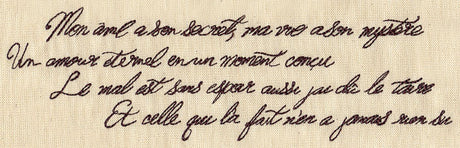 Mon âme a son secret, ma vie a son mystère
Un amour éternel en un moment conçu
Le mal est sans espoir aussi j'ai dû le taire
Et celle qui l'a fait n'en a jamais rien su